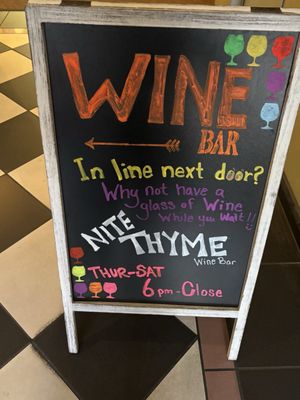 WINE
BAR
In line next door?
Why not have a
glass of Wine
While you Wait!!
NITE
THYME
Wine Bar
THUR-SAT
6pm-Close